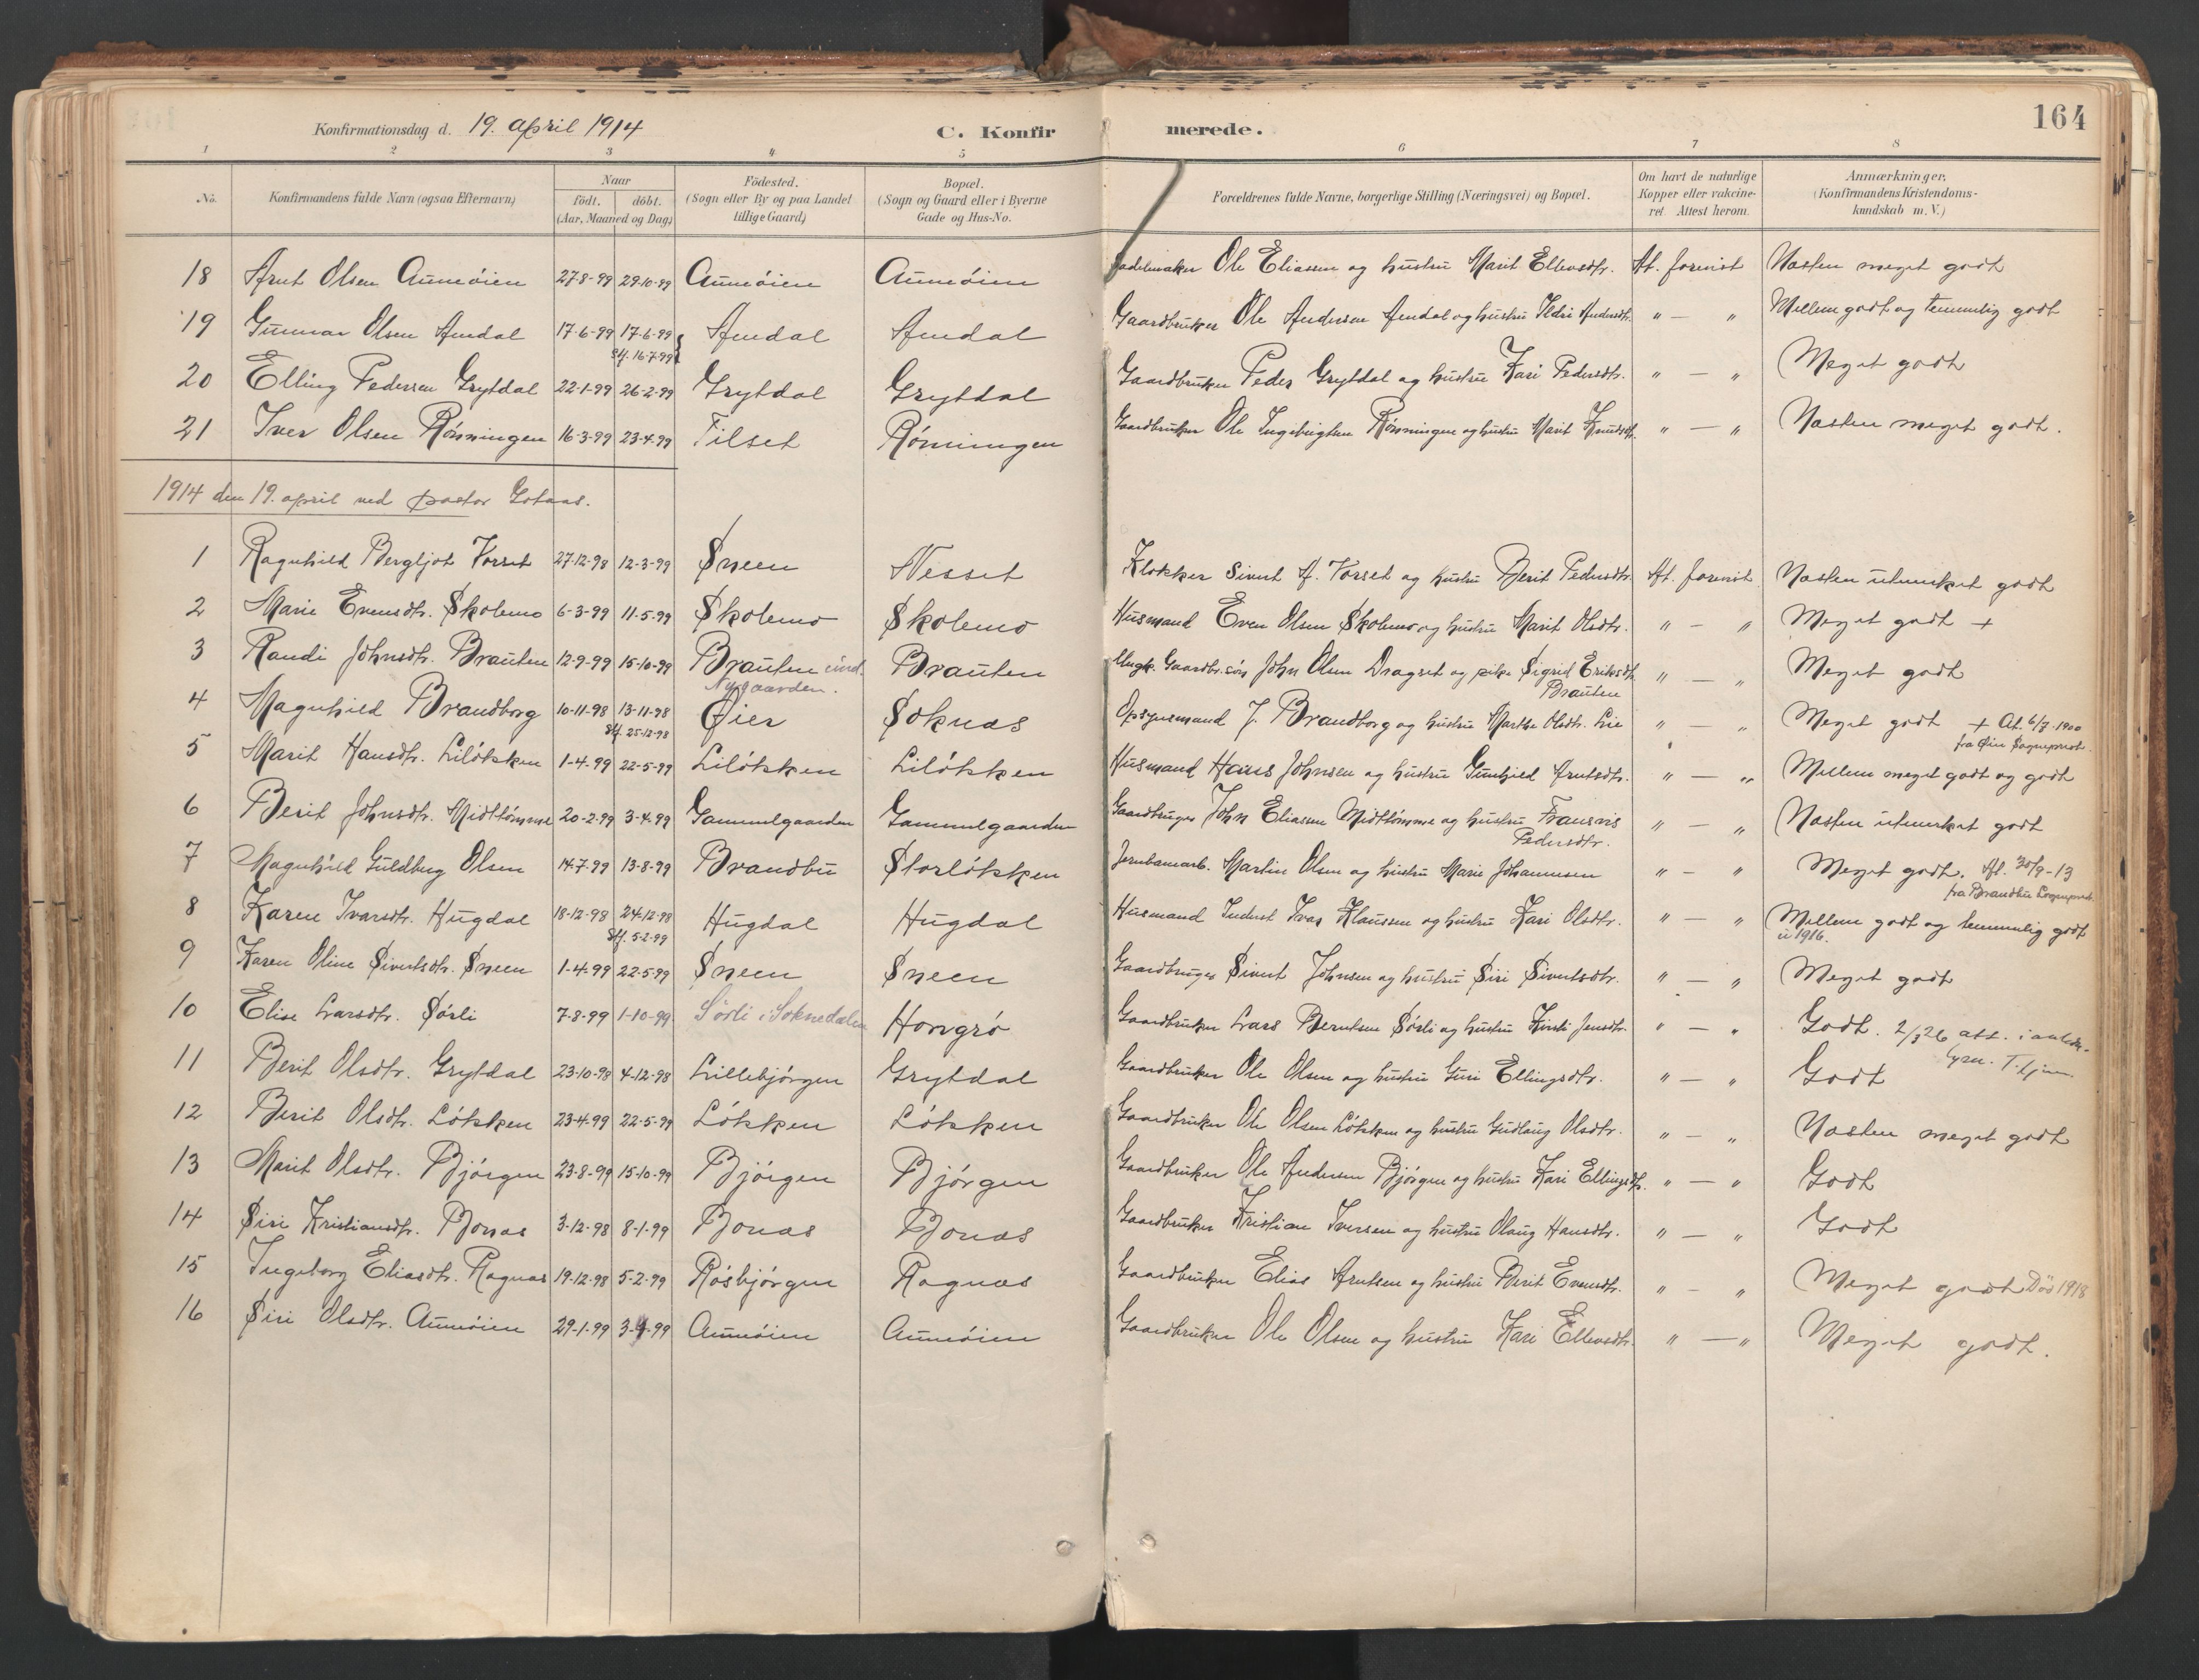 164
Konfirmationsdag d. 19. april 1914 C. Konfirmerede.
1 2 3 4 5 6 7 8
No. Konfirmandens fulde Navn (ogsaa Efternavn) Naar födt. döbt. (Aar, Maaned og Dag) Födested. (Sogn eller By og paa Landet tillige Gaard) Bopæl. (Sogn og Gaard eller i Byerne Gade og Hus-No. Forældrenes fulde Navne, borgerlige Stilling (Næringsvei) og Bopæl. Om havt de naturlige Kopper eller vakcineret. Attest herom. Anmærkninger, (Konfirmandens Kristendomskundskab m. V.)
18 Arnt Olsen Aunøien 27-8-99 29-10-99 Aunøien Aunøien Sadelmaker Ole Eliassen og hustru Marit Ellevsdtr. At. forevist Næsten meget godt
19 Gunnar Olsen Amdal 17-6-99 17-6-99 Stf. 16-7-99 Amdal Amdal Gaardbruker Ole Andersen Amdal og hustru Ildri Andersdtr. " — " Mellem godt og temmelig godt
20 Elling Pedersen Grytdal 22-1-99 26-2-99 Grytdal Grytdal Gaardbruker Peder Grytdal og hustru Kari Pedersdtr. " — " Meget godt
21 Iver Olsen Rønningen 16-3-99 23-4-99 Tilset Rønningen Gaardbruker Ole Ingebrigtsen Rønningen og hustru Marit Knudsdtr. " — " Næsten meget godt.
1914 den 19. april ved pastor Gotaas.
1 Ragnhild Bergljot Vorset 27-12-98 12-3-99 Sneen Nesset Klokker Sivert A. Vorset og hustru Berit Pedersdtr. At. forevist Næsten utmerket godt
2 Marie Evensdtr. Skolemo 6-3-99 11-5-99 Skolemo Skolemo Husmand Even Olsen Skolemo og hustru Marit Olsdtr. " — " Meget godt +
3 Randi Johnsdtr. Brauten 12-9-99 15-10-99 Brauten und. Nygaarden. Brauten Ungk. Gaardbr.søn John Olsen Dragset og pike Sigrid Eriksdtr. Brauten " — " Meget godt
4 Magnhild Brandborg 10-11-98 13-11-98 Stf. 25-12-98 Øier Soknæs Opsynsmand J. Brandborg og hustru Marthe Olsdtr. Lie " — " Meget godt + At. 6/7 1900 fra Øier Sogneprest.
5 Marit Hansdtr. Liløkken 1-4-99 22-5-99 Liløkken Liløkken Husmand Hans Johnsen og hustru Gunhild Arntsdtr. " — " Mellem meget godt og godt
6 Berit Johnsdtr. Midttømme 20-2-99 3-4-99 Gammelgaarden Gammelgaarden Gaardbruger John Eliassen Midttømme og hustru Fransvis Pedersdtr. " — " Næsten utmerket godt
7 Magnhild Guldberg Olsen 14-7-99 13-8-99 Brandbu Storløkken Jernbanearb. Martin Olsen og hustru Marie Johannesen " — " Meget godt. At. 30/9-13 fra Brandbu Sogneprest.
8 Karen Ivarsdtr. Hugdal 18-12-98 24-12-98 Stf. 5-2-99 Hugdal Hugdal Husmand Inderst Ivar Klaussen og hustru Kari Olsdtr. " — " Mellem godt og temmelig godt u 1916.
9 Karen Oline Sivertsdtr. Sneen 1-4-99 22-5-99 Sneen Sneen Gaardbruger Sivert Johnsen og hustru Siri Sivertsdtr. " — " Meget godt
10 Elise Larsdtr. Sørli 7-8-99 1-10-99 Sørli i Soknedalen Hongrø Gaardbruker Lars Berntsen Sørli og hustru Kirsti Jensdtr. " — " Godt. 2/3 26 att.
11 Berit Olsdtr. Grytdal 23-10-98 4-12-98 Lillebjørgen Grytdal Gaardbruker Ole Olsen og hustru Guri Ellingsdtr. " — " Godt
12 Berit Olsdtr. Løkken 23-4-99 22-5-99 Løkken Løkken Gaardbruker Ole Olsen Løkken og hustru Gudlaug Olsdtr. " — " Næsten meget godt
13 Marit Olsdtr. Bjørgen 23-8-99 15-10-99 Bjørgen Bjørgen Gaardbruker Ole Andersen Bjørgen og hustru Kari Ellingsdtr. " — " Godt
14 Siri Kristiansdtr. Bonæs 3-12-98 8-1-99 Bonæs Bonæs Gaardbruker Kristian Iversen og hustru Olaug Hansdtr. " — " Godt
15 Ingeborg Eliasdtr. Ragnæs 19-12-98 5-2-99 Røsbjørgen Ragnæs Gaardbruker Elias Arntsen og hustru Berit Evensdtr. " — " Meget godt Død 1918
16 Siri Olsdtr. Aunøien 29-1-99 3-4-99 Aunøien Aunøien Gaardbruker Ole Olsen og hustru Kari Ellevsdtr. " — " Meget godt.